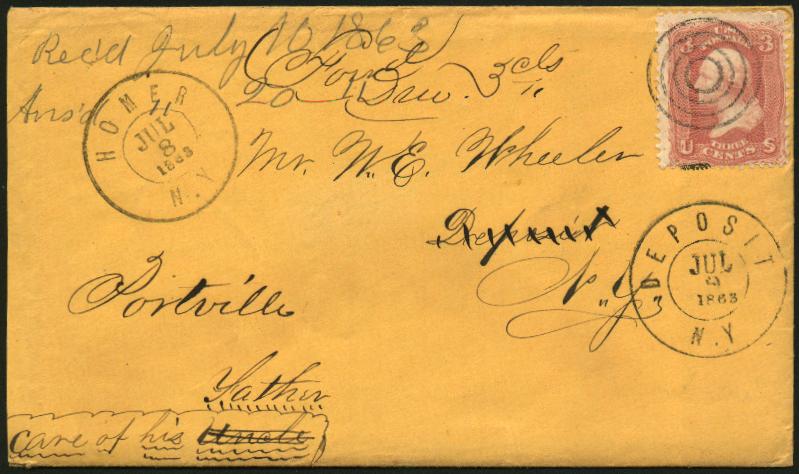 Rec'd July 10 1863
Ans'd 20 "
Forwd
Due 3 cts
HOMER
JUL
8
1863
N.Y
U S POSTAGE
3 3
U THREE CENTS S
Mr. W. E. Wheeler
Deposit
N.Y.
DEPOSIT
JUL
1863
N.Y
Portville
Father
care of his Uncle